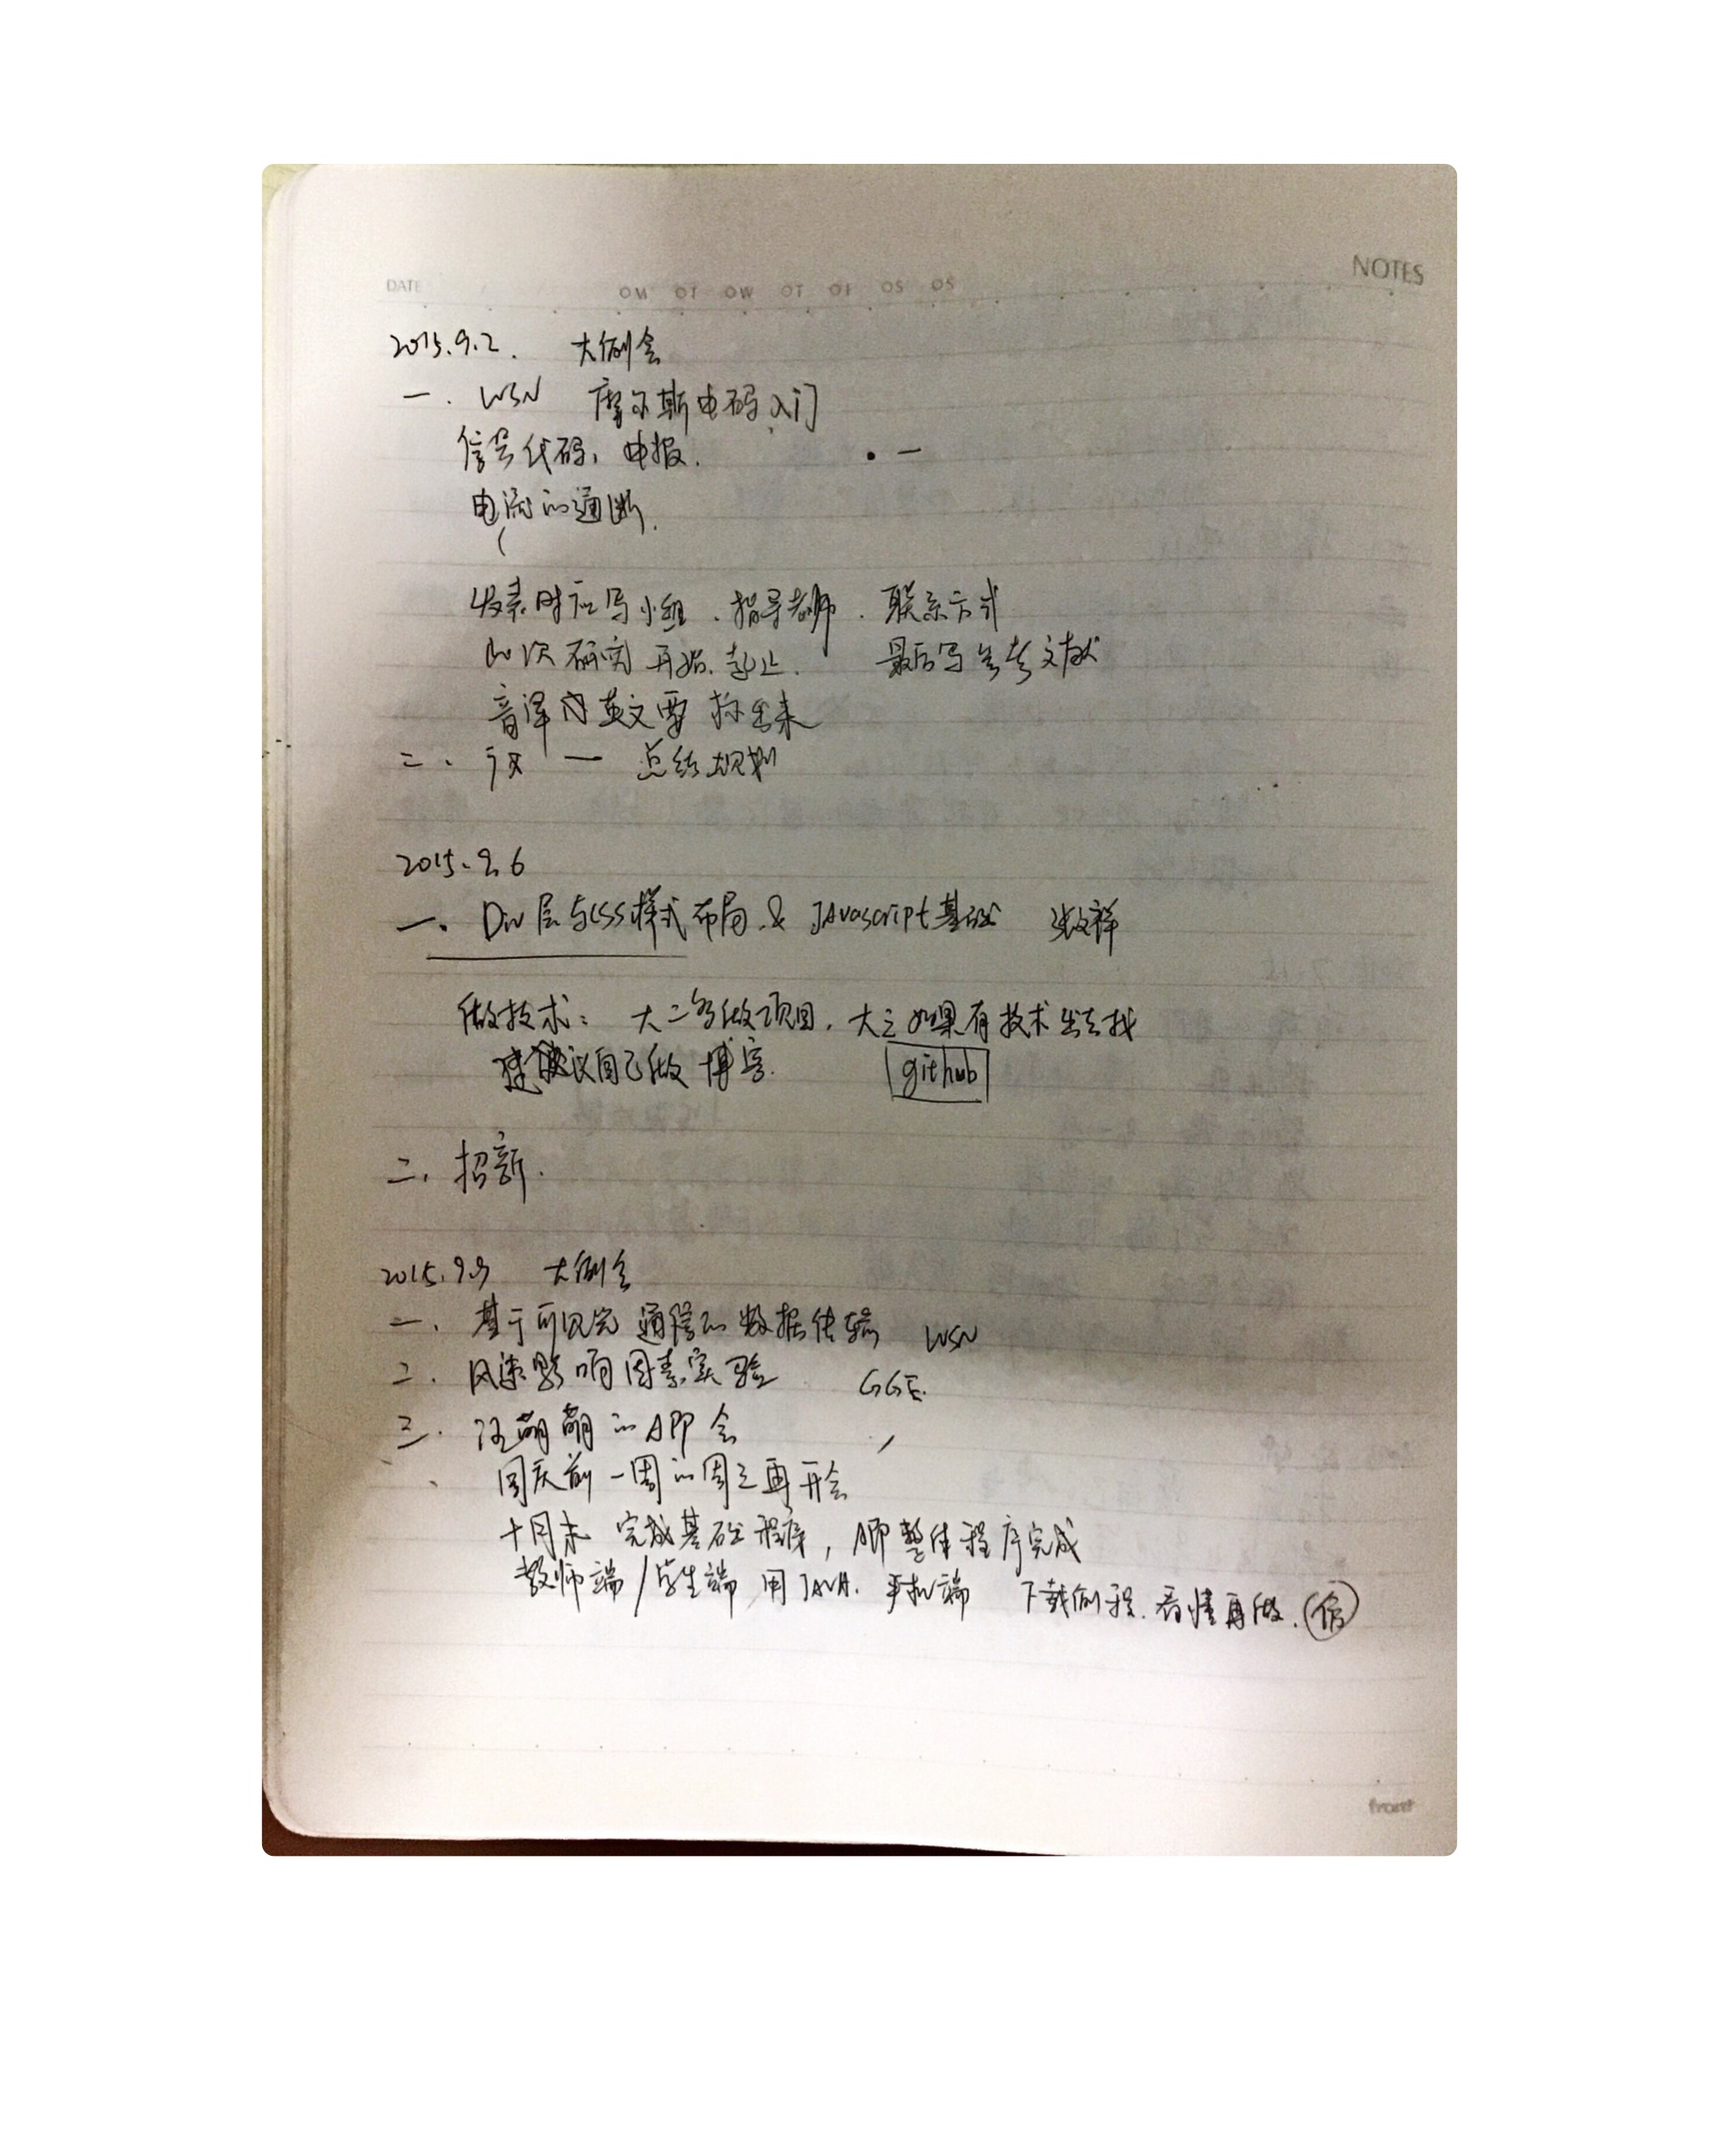 NOTES
DATE
2015.9.2. 大例会
一. WSN 摩尔斯电码入门
信号代码, 电报.
电流的通断.
发表时应写小组. 指导老师. 联系方式
研究开始.起止. 最后写参考文献
音译的英文要标出来
二. 一 总结规划
2015.9.6
一. Div层与CSS样式布局 & JAvascript基础
做技术: 大二多做项目, 大三如果有技术出去找
建议自己做博客. github
二. 招新.
2015.9.9 大例会
一. 基于可见光通信的数据传输 WSN
二. 风速影响因素实验 GGE.
三. 汪萌萌的APP会
国庆前一周的周三再开会
十月末 完成基础程序, APP整体程序完成
教师端/学生端 用JAVA. 手机端 下载例程.看懂再做.
front